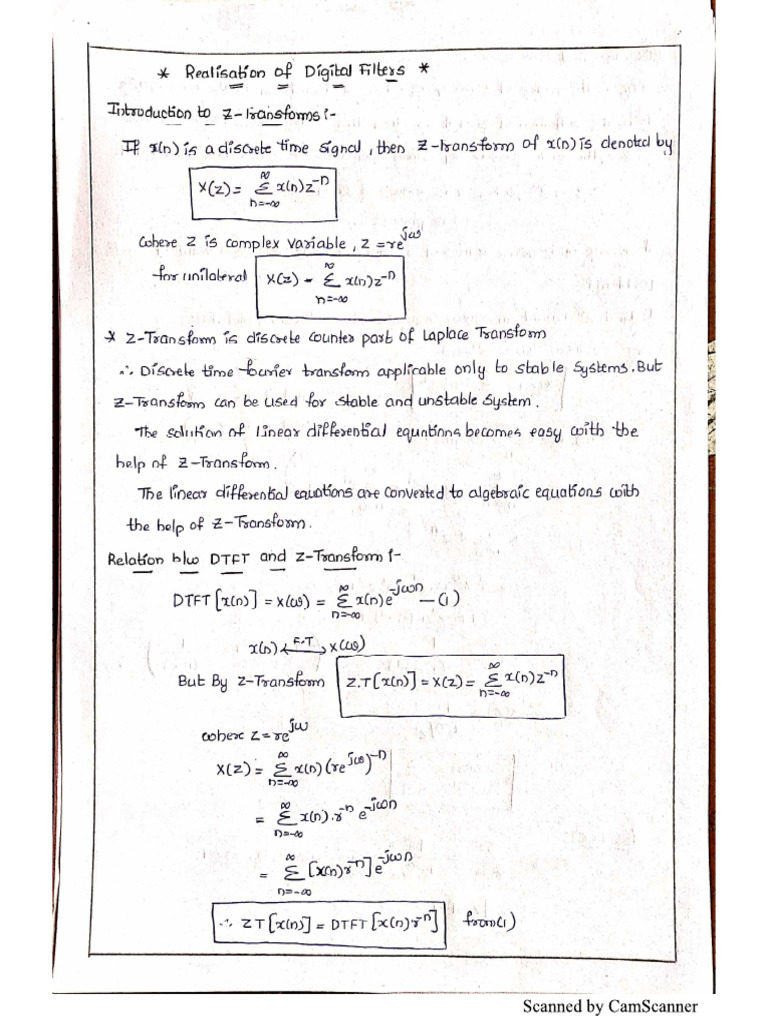 * Realisation of Digital Filters *
Introduction to Z-transforms:-
If x(n) is a discrete time signal, then Z-transform of x(n) is denoted by
X(z) = ∞ Σ n=-∞ x(n) z^-n
where Z is complex variable, z = re^jω
for unilateral X(z) - ∞ Σ n=-∞ x(n) z^-n
* Z-Transform is discrete counter part of Laplace Transform
∴ Discrete time fourier transform applicable only to stable systems. But
Z-Transform can be used for stable and unstable system.
The solution of linear differential equations becomes easy with the
help of Z-Transform.
The linear differential equations are converted to algebraic equations with
the help of Z-Transform.
Relation b/w DTFT and Z-Transform:-
DTFT[x(n)] = X(ω) = ∞ Σ n=-∞ x(n) e^-jωn — (1)
x(n) ←F.T→ X(ω)
But By Z-Transform Z.T[x(n)] = X(z) = ∞ Σ n=-∞ x(n) z^-n
where Z = re^jω
X(z) = ∞ Σ n=-∞ x(n) (re^jω)^-n
= ∞ Σ n=-∞ x(n). r^-n e^-jωn
= ∞ Σ n=-∞ [x(n) r^-n] e^-jωn
∴ ZT[x(n)] = DTFT[x(n) r^-n] from (1)
Scanned by CamScanner